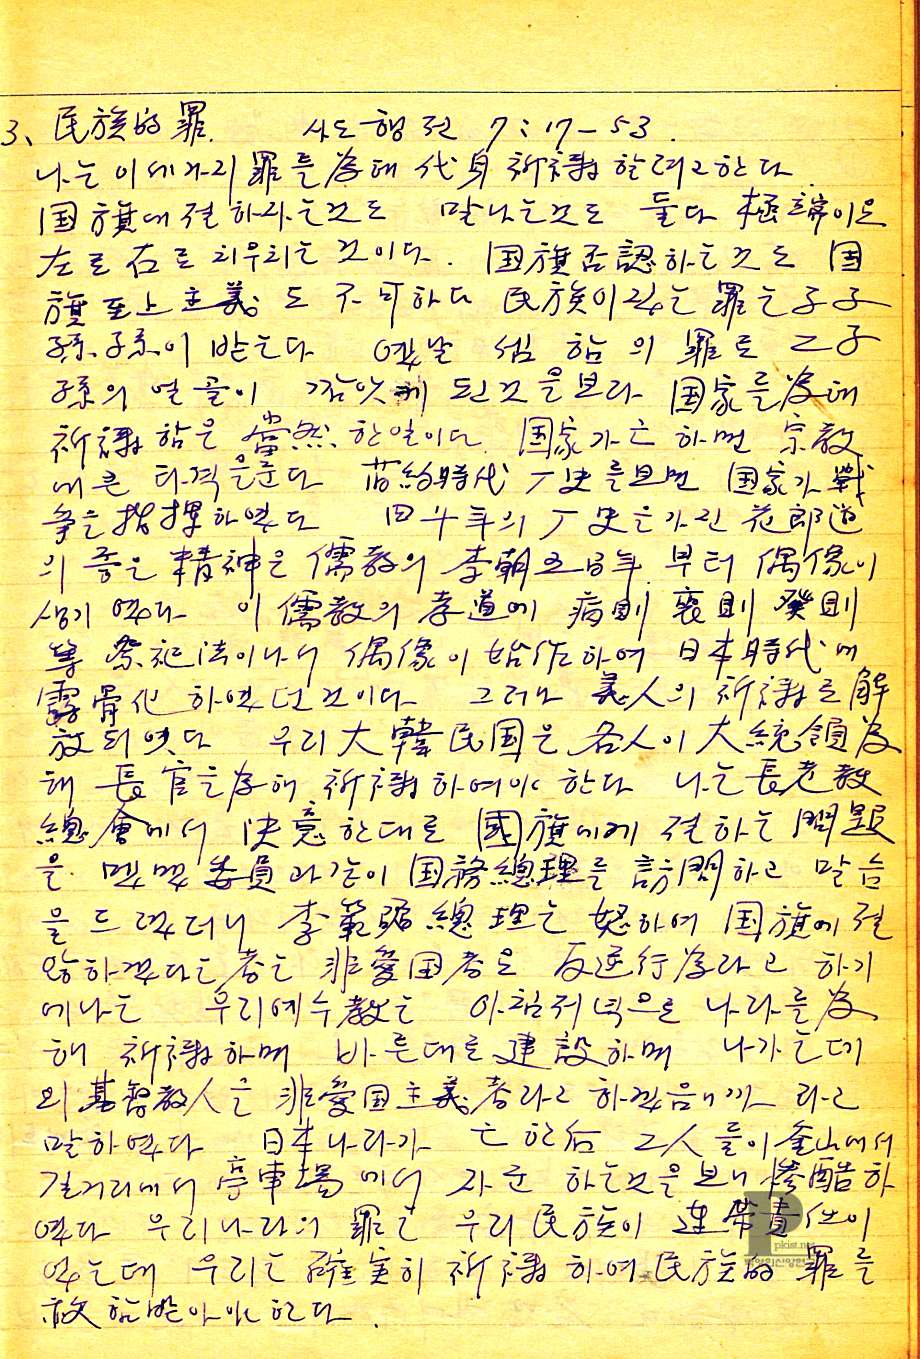 3、民族的 罪. 사도행전 7:17-53.
나는 이 세가지 罪를 為해 代身 祈禱할려고한다
国旗에 절하라는것도 말나는것도 둘다 極端이은
左로 右로 치우리는 것이다. 国旗否認하는것도 国
旗至上主義도 不可하다 民族이 짓는 罪는 子子
孫孫이 받는다 옛날 셈 함의 罪로 그子
孫의 얼골이 깜앗케 된것을보라 国家를為해
祈禱함은 當然한일이다. 国家가 亡하면 宗教
에큰 타격을준다 旧約時代 厂史를보면 国家가 戰
争을 指揮하였다 四千年의 厂史를가진 花郎道
의 좋은 精神은 儒教의 李朝五百年부터 偶像이
생기였다 이 儒教의 孝道에 病則 哀則
等 祭祀法이나서 偶像이 始作하여 日本時代에
露骨化 하였던것이다 그러나 義人의 祈禱로 解
放되엿다 우리 大韓民国은 各人이 大統領為
해 長官을為해 祈禱하여야 한다 나는 長老教
總會에서 決意한대로 國旗에게 절하는 問題
을 몇몇 委員과같이 国務總理를 訪問하고 말슴
을 드렸더니 李範奭 總理는 怒하여 国旗에 절
않하겠다는 者는 非愛国者요 反逆行為라고 하기
에 나는 우리예수教는 아침저녁으로 나라를為
해 祈禱하며 바른대로 建設하며 나가는데
외 基督教人을 非愛国主義者라고 하겠음니까 라고
말하였다 日本나라가 亡한后 그人들이 釜山에서
길거리에서 停車場에서 자는 하는것을 보니 慘酷하
였다 우리나라의 罪는 우리 民族이 連帶責任이
있는데 우리는 確実히 祈禱하여 民族的 罪를
赦함받아야 한다.
pkist.net